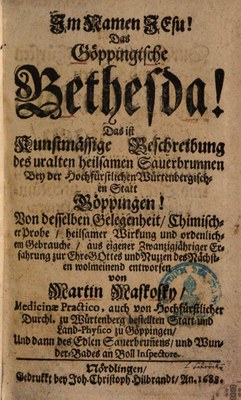 Im Namen JEsu!
Das
Göppingische
Bethesda!
Das ist
Kunstmässige Beschreibung
des uralten heilsamen Sauerbrunnen
Bey der Hochfürstlichen Würtenbergisch-
en Statt
Göppingen!
Von desselben Gelegenheit/ Chimisch-
er Probe/ heilsamer Wirkung und ordenlich-
em Gebrauche/ aus eigener Zwanzigjähriger Er-
fahrung zur Ehre GOttes und Nuzen des Nächst-
en wolmeinend entworfen
von
Martin Maskosky/
Medicinæ Practico, auch von Hochfürstlicher
Durchl. zu Würtenberg bestellten Statt und
Land-Physico zu Göppingen/
Und dann des Edlen Sauerbrunens/ und Wun-
der-Bades an Boll Inspectore.
Nördlingen/
Gedrukt bey Joh-Christoph Hilbrandt/ An. 1688.